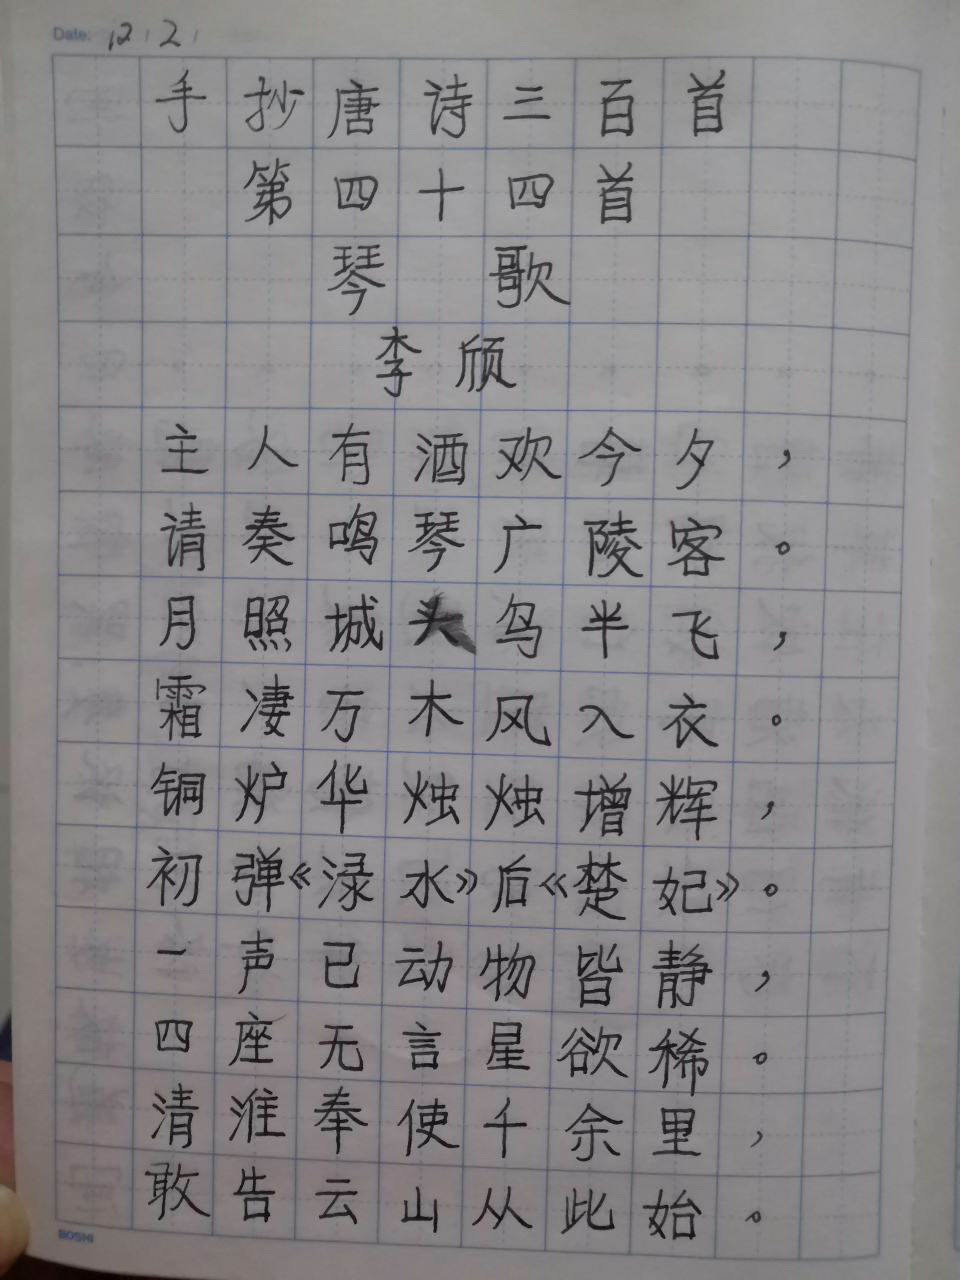 Date: 12 / 2 /
手抄唐诗三百首
第四十四首
琴 歌
李颀
主人有酒欢今夕，
请奏鸣琴广陵客。
月照城头鸟半飞，
霜凄万木风入衣。
铜炉华烛烛增辉，
初弹《渌水》后《楚妃》。
一声已动物皆静，
四座无言星欲稀。
清淮奉使千余里，
敢告云山从此始。
BOSHI